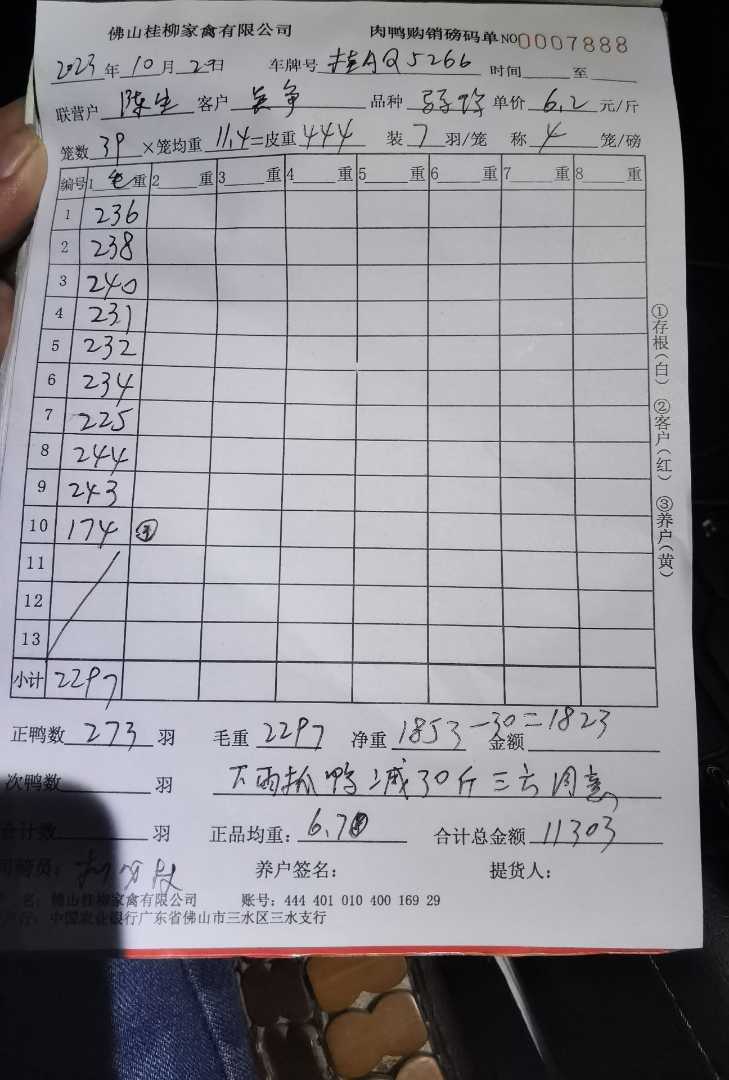 佛山桂柳家禽有限公司 肉鸭购销磅码单 NO0007888
2023年10月29日 车牌号 桂AQ5266 时间 至
联营户 陈生 客户 品种 单价 6.2 元/斤
笼数 39 ×笼均重 11.4=皮重 444 装 7 羽/笼 称 4 笼/磅
编号 1 毛重 2 重 3 重 4 重 5 重 6 重 7 重 8 重
1 236
2 238
3 240
4 231
5 232
6 234
7 225
8 244
9 243
10 174 ③
11
12
13
小计 2297
①存根(白) ②客户(红) ③养户(黄)
正鸭数 273 羽 毛重 2297 净重 1853-30=1823 金额
次鸭数 羽 下雨抓鸭减30斤三方同意
合计数 羽 正品均重: 6.7 合计总金额 11303
司磅员: 养户签名: 提货人:
名: 佛山桂柳家禽有限公司 账号: 444 401 010 400 169 29
行: 中国农业银行广东省佛山市三水区三水支行